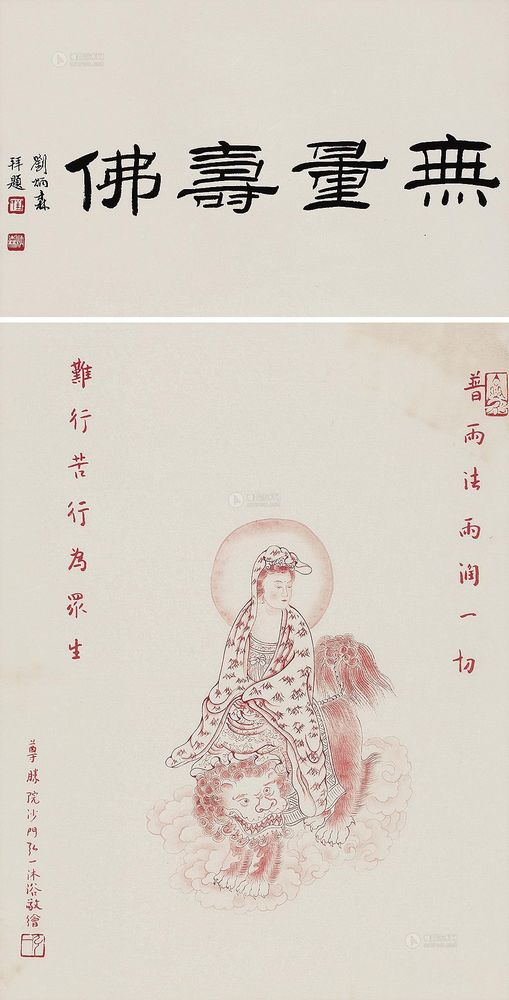 無量壽佛
劉炳森
拜題
普雨法雨潤一切
難行苦行為眾生
尊勝院沙門弘一沐浴敬繪